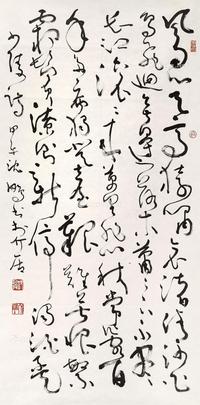 風急天高猿嘯哀渚清沙白
鳥飛迴無邊落木蕭〻下不盡
長江滾〻來萬里悲秋常作客百
年多病獨登臺艱難苦恨繁
霜鬢潦倒新停濁酒杯
少陵詩甲午沈鵬書於介居